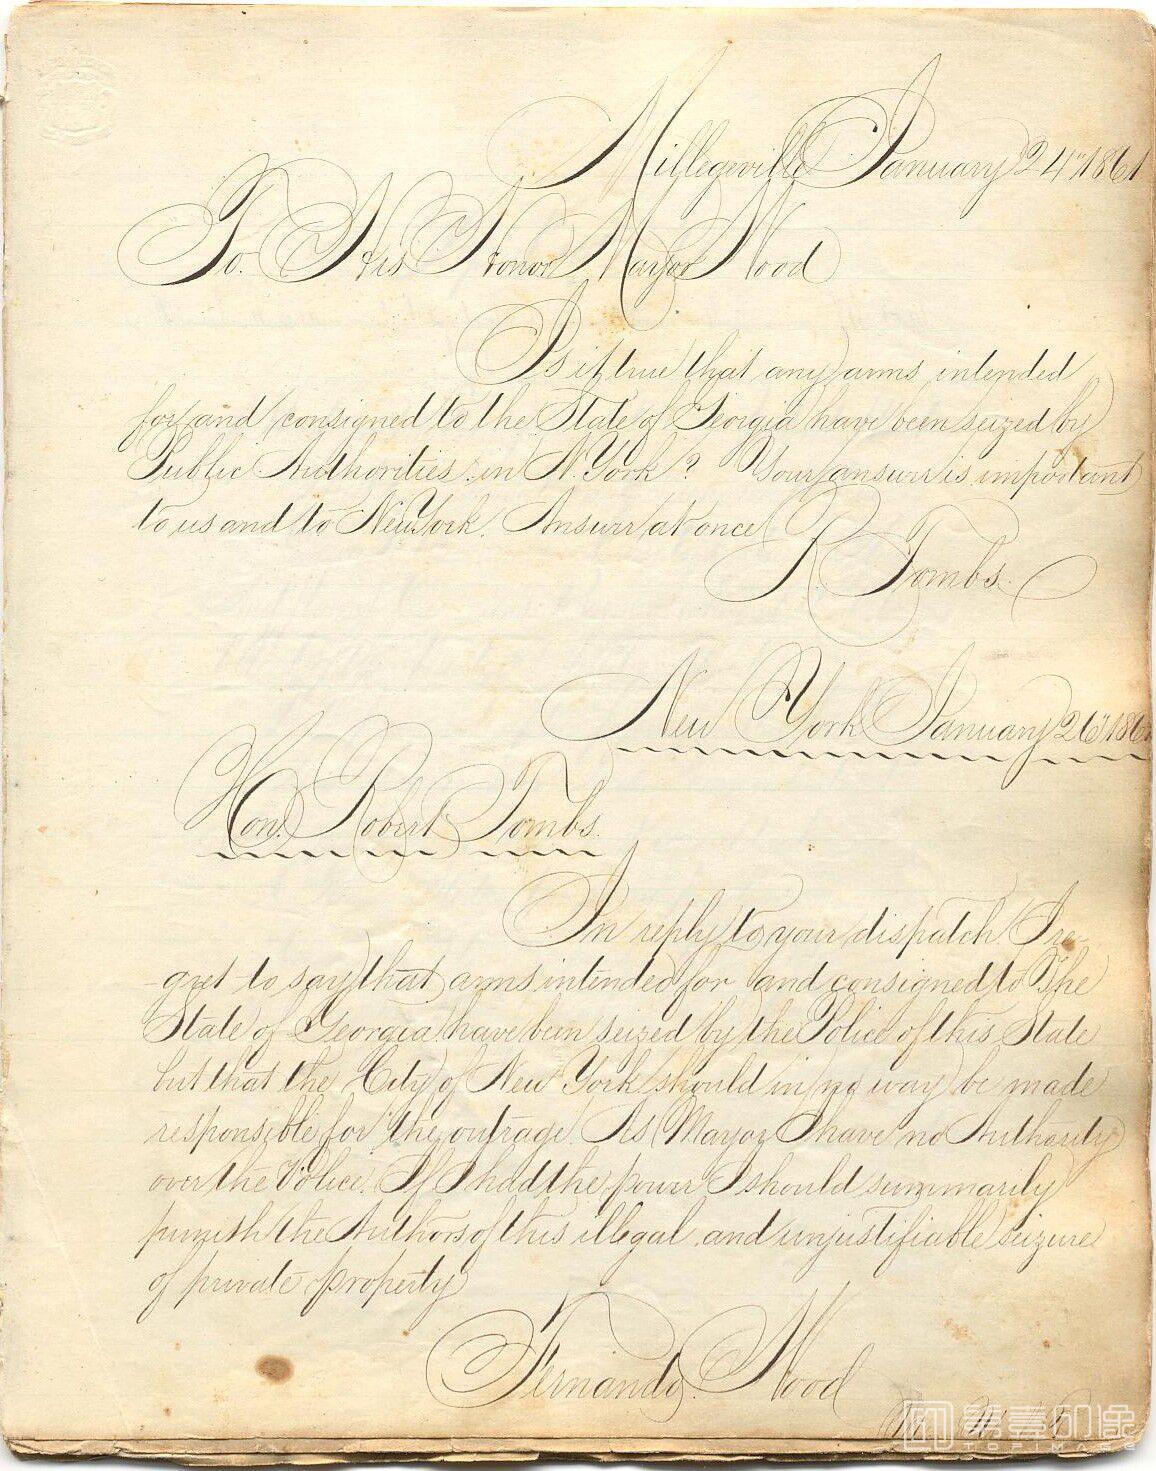 Millegeville January 24th 1861
To. His Honor Mayor Wood
Is it true that any arms intended
for and consigned to the State of Georgia have been seized by
Public Authorities in N. York? Your answer is important
to us and to New York. Answer at once
R. Tombs.
New York January 26th 1861
Hon. Robert Tombs.
In reply to your dispatch I re-
-gret to say that arms intended for and consigned to The
State of Georgia have been seized by the Police of this State
but that the City of New York should in no way be made
responsible for the outrage. As Mayor I have no Authority
over the Police. If I had the power I should summarily
punish the Authors of this illegal and unjustifiable seizure
of private property
Fernando. Wood
TOPIMAGE